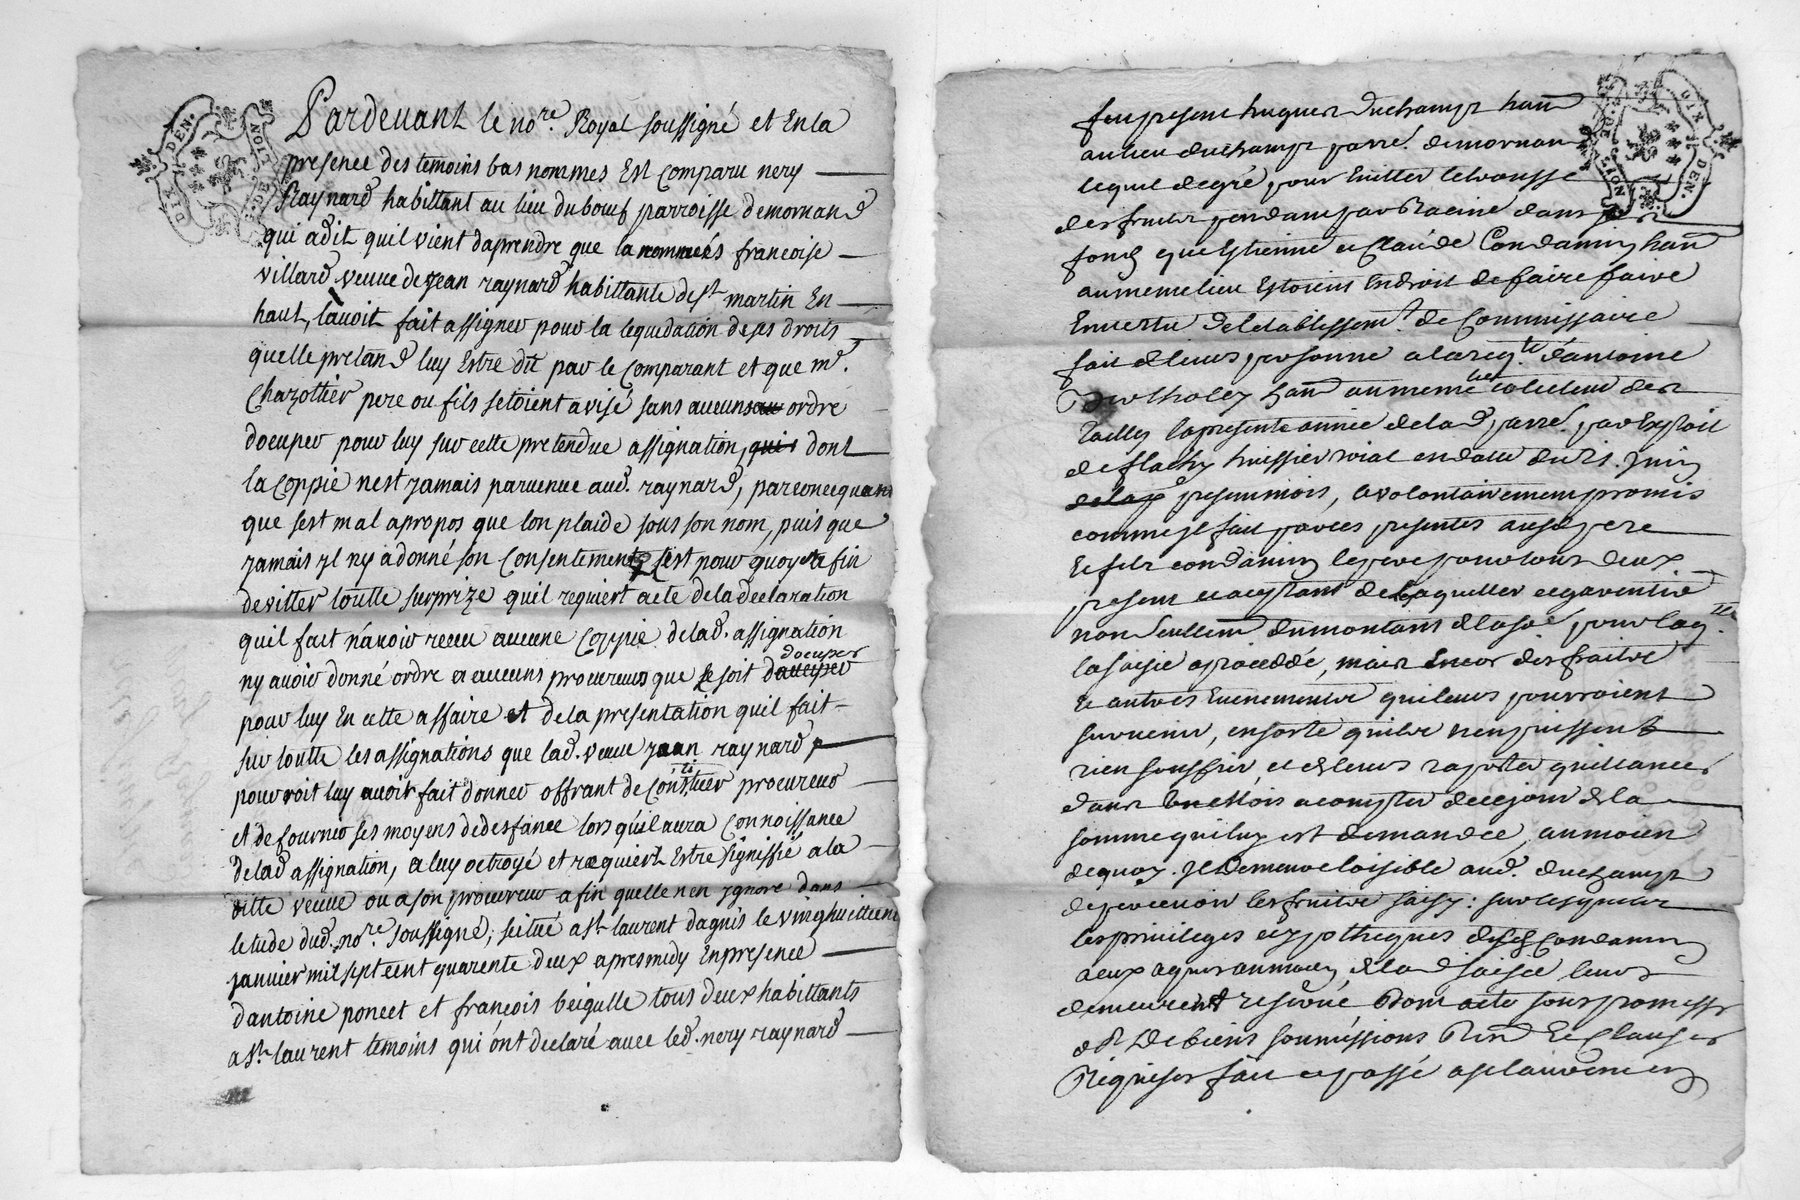 DIX DEN.
G. DE LION
Pardevant le no.re Royal soussigné et En la
presence des temoins bas nommes Est Comparu nery
Raynard habittant au lieu du bœuf parroisse demornand
qui adit quil vient daprendre que la nommeés francoise
villard veuve de jean raynard habittante de st martin En
haut, lavoit fait assigner pour la lequidation deses droits
quelle pretand luy Estre dû par le Comparant et que mr.
Chazottier pere ou fils setoient avisé sans aucuns ordre
docuper pour luy sur cette pretendue assignation, qui dont
la Coppie nest jamais parvenue aud. raynard, par conecquant
que sest mal apropos que lon plaide sous son nom, puis que
jamais yl ny a donné son Consentement sest pour quoy afin
devitter toutte surprize quil requiert acte de la declaration
quil fait n'avoir receu aucune Coppie de lad. assignation
docuper
ny avoir donné ordre a aucuns procureurs que se soit daucuper
pour luy En cette affaire et de la presentation quil fait
sur toutte les assignations que lad. veuve jean raynard
pourroit luy avoir fait donner offrant de Constituer procureur
et de fournir ses moyens dedesfance lors quil aura Connoissance
de lad assignation, a luy octroyé et requiert Estre signiffié a la
ditte veuve ou a son procureur afin quelle nen ygnore dans
letude dud. no.re soussigné, scitué a st laurent dagnis le vinghuittieme
janvier mil sept cent quarente deux apresmidy En presence
dantoine poncet et françois beigulle tous deux habittants
a st laurent temoins qui ónt declaré avec led. nery raynard
DIX DEN.
G. DE LION
feu present hugues Duchamps han
au lieu duchamps parre. demornan
lequel de gré pour Eviter
des fruits pendants par Racine dans
fond que Estienne et Claude Condamin han
au meme lieu Estoient Endroit de faire faire
En vertu de letablissem.t de Commissaire
fait de leurs personne a la req.te dantoine
han au meme lieu colecteur des
tailles la presente année de lad parre. par Exploit
de flachy huissier roial en datte du 21. juin
present mois, a volontairement promis
comme jl fait par ces presentes ausd pere
Et fils condamin le pere pour tous deux
present et aceptant de les aquitter et garentir
non seullem.t du montant de la pour laq.lle
la saisie a procedée, mais Encor des fraits
Et autres Evenements qui leurs pourroient
survenir, en sorte quils nen puissent
rien souffrir, et de leurs raporter quittances
dans un mois a compter de ce jour de la
somme qui luy est demandee, au moien
de quoy. jl demeure loisible aud. duchamps
de percevoir les fruits saisy: sur lesquels
les privileges et ypotheques desd Condamin
a eux aquis au moien de lad saisie leurs
demeurent reservé, Dont acte sous promesse
de Biens soumissions Ren Et Clauses
Requises fait et passé a